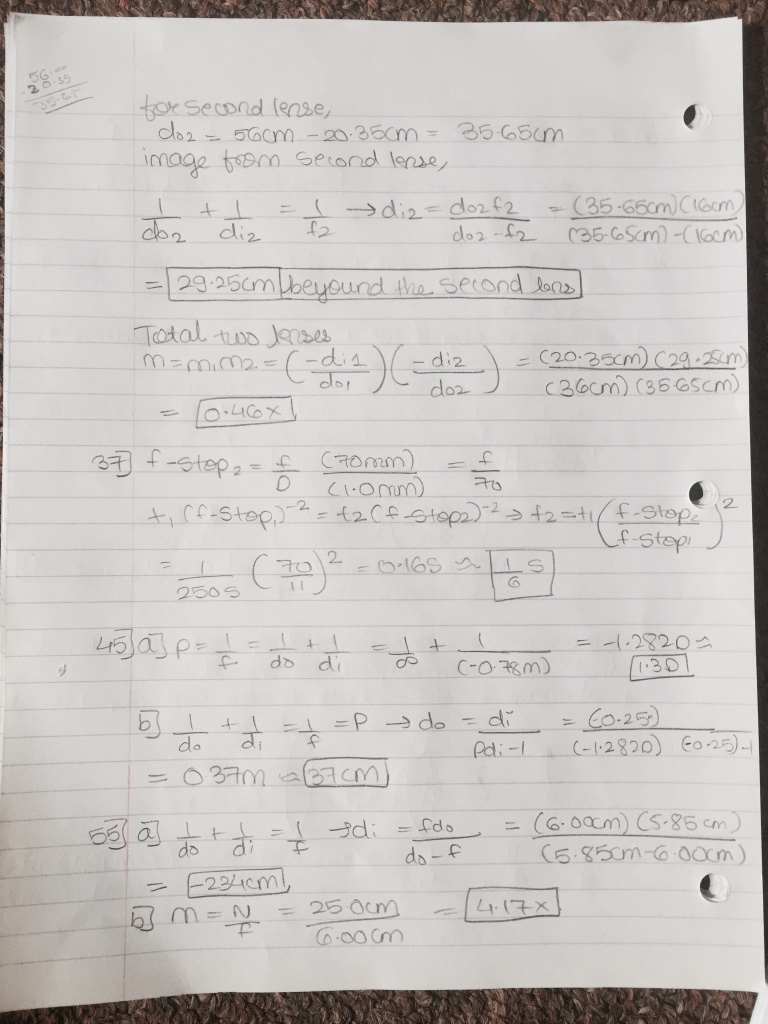 56.00
-20.35
35.65
for second lense,
do2 = 56cm - 20.35cm = 35.65cm
image from second lense,
1/do2 + 1/di2 = 1/f2 → di2 = do2f2/do2-f2 = (35.65cm)(16cm)/(35.65cm)-(16cm)
= 29.25cm beyound the second lens
Total two lenses
m = m1m2 = (-di1/do1)(-di2/do2) = (20.35cm)(29.25cm)/(36cm)(35.65cm)
= 0.46x
37] f-stop2 = f/D (70mm)/(1.0mm) = f/70
t1(f-stop1)^-2 = t2(f-stop2)^-2 → t2 = t1(f-stop2/f-stop1)^2
= 1/250s (70/11)^2 = 0.16s ≈ 1/6 s
45] a] P = 1/f = 1/do + 1/di = 1/∞ + 1/(-0.78m) = -1.282D ≈
1.3D
b] 1/do + 1/di = 1/f = P → do = di/Pdi-1 = (-0.25)/(-1.282D)(-0.25)-1
= 0.37m ≈ 37cm
55] a] 1/do + 1/di = 1/f → di = fdo/do-f = (6.00cm)(5.85cm)/(5.85cm-6.00cm)
= -234cm
b] M = N/f = 25.0cm/6.00cm = 4.17x